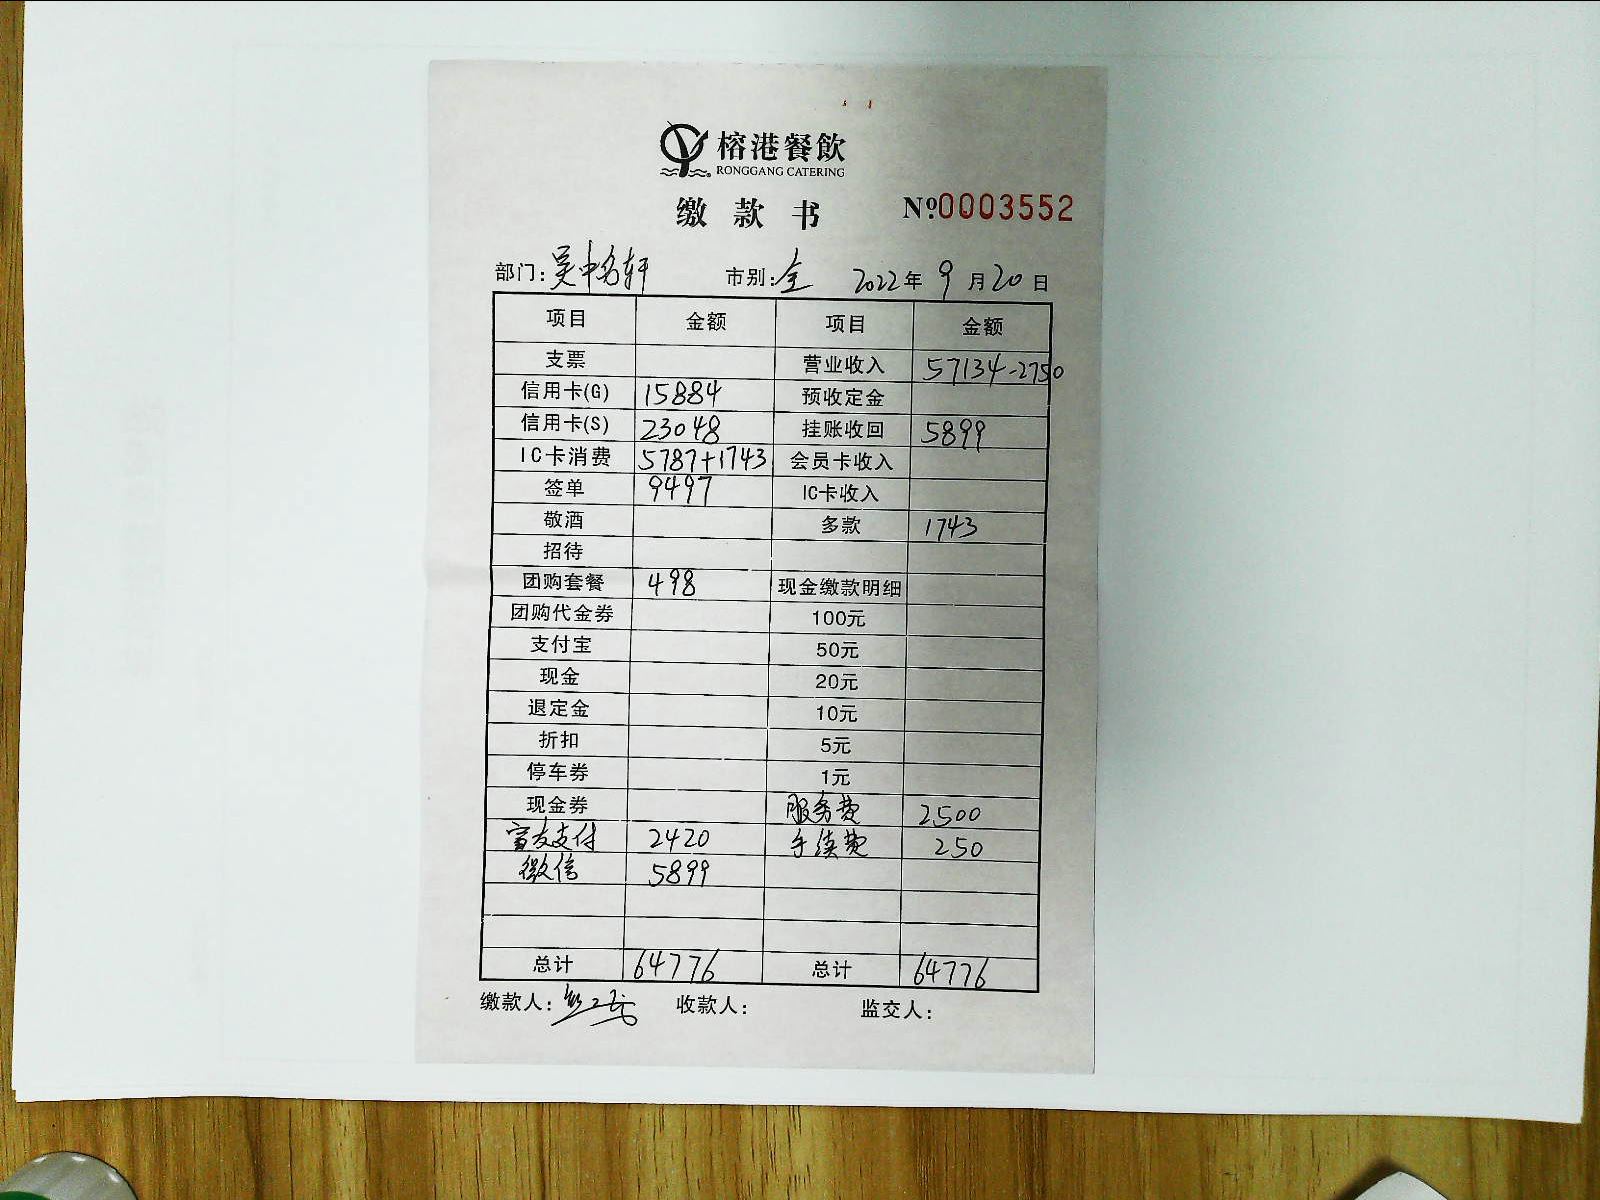 榕港餐飲
RONGGANG CATERING
缴款书 №0003552
部门:吴中名轩 市别:全 2022年9月20日
项目 金额 项目 金额
支票 营业收入 57134-2750
信用卡(G) 15884 预收定金
信用卡(S) 23048 挂账收回 5899
IC卡消费 5787+1743 会员卡收入
签单 9497 IC卡收入
敬酒 多款 1743
招待
团购套餐 498 现金缴款明细
团购代金券 100元
支付宝 50元
现金 20元
退定金 10元
折扣 5元
停车券 1元
现金券 服务费 2500
富友支付 2420 手续费 250
微信 5899
总计 64776 总计 64776
缴款人: 收款人: 监交人: